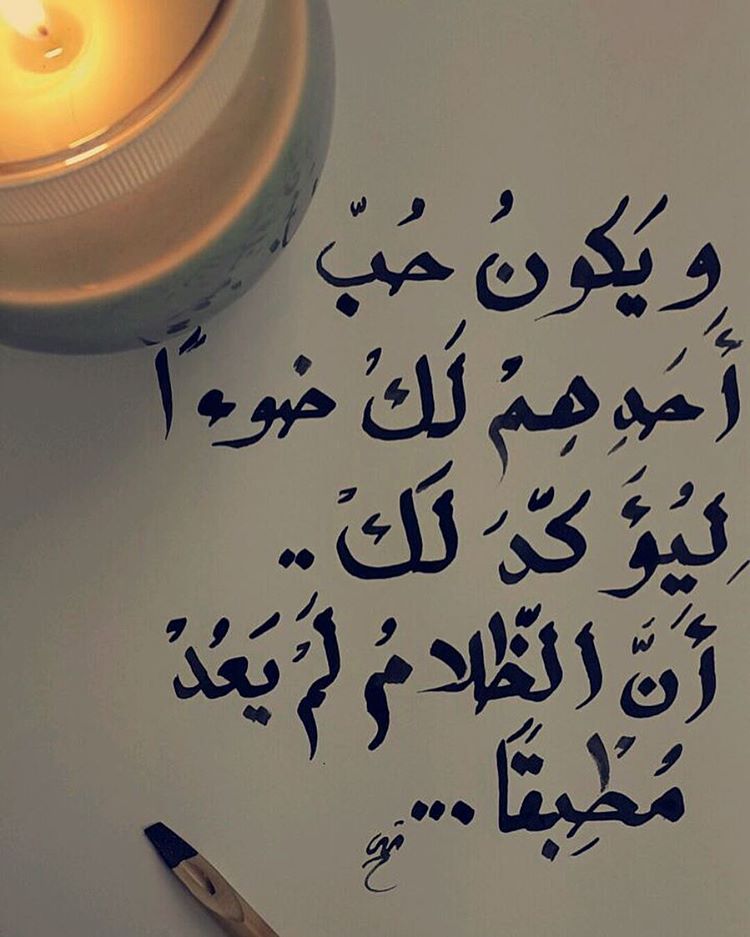 و يَكونُ حُبّ
أَحَدِهِمْ لَكْ ضوءًا
لِيُؤَكّدَ لَكْ ..
أَنَّ الظّلامُ لَمْ يَعُدْ
مُطْبِقًا ...